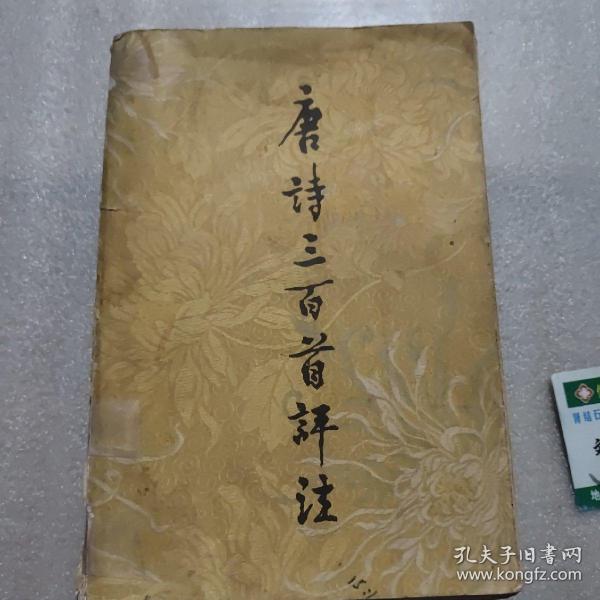 唐詩三百首評註
孔夫子旧书网
www.kongfz.com